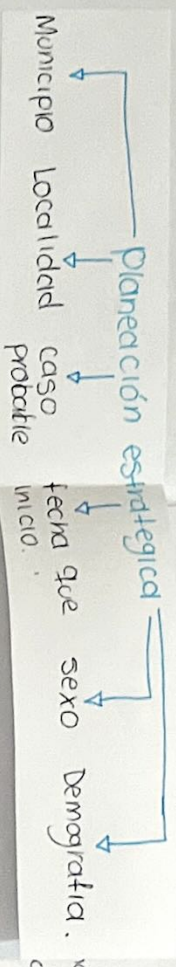 planeación estrategica
Municipio Localidad caso probable fecha que inicio. sexo Demografia.